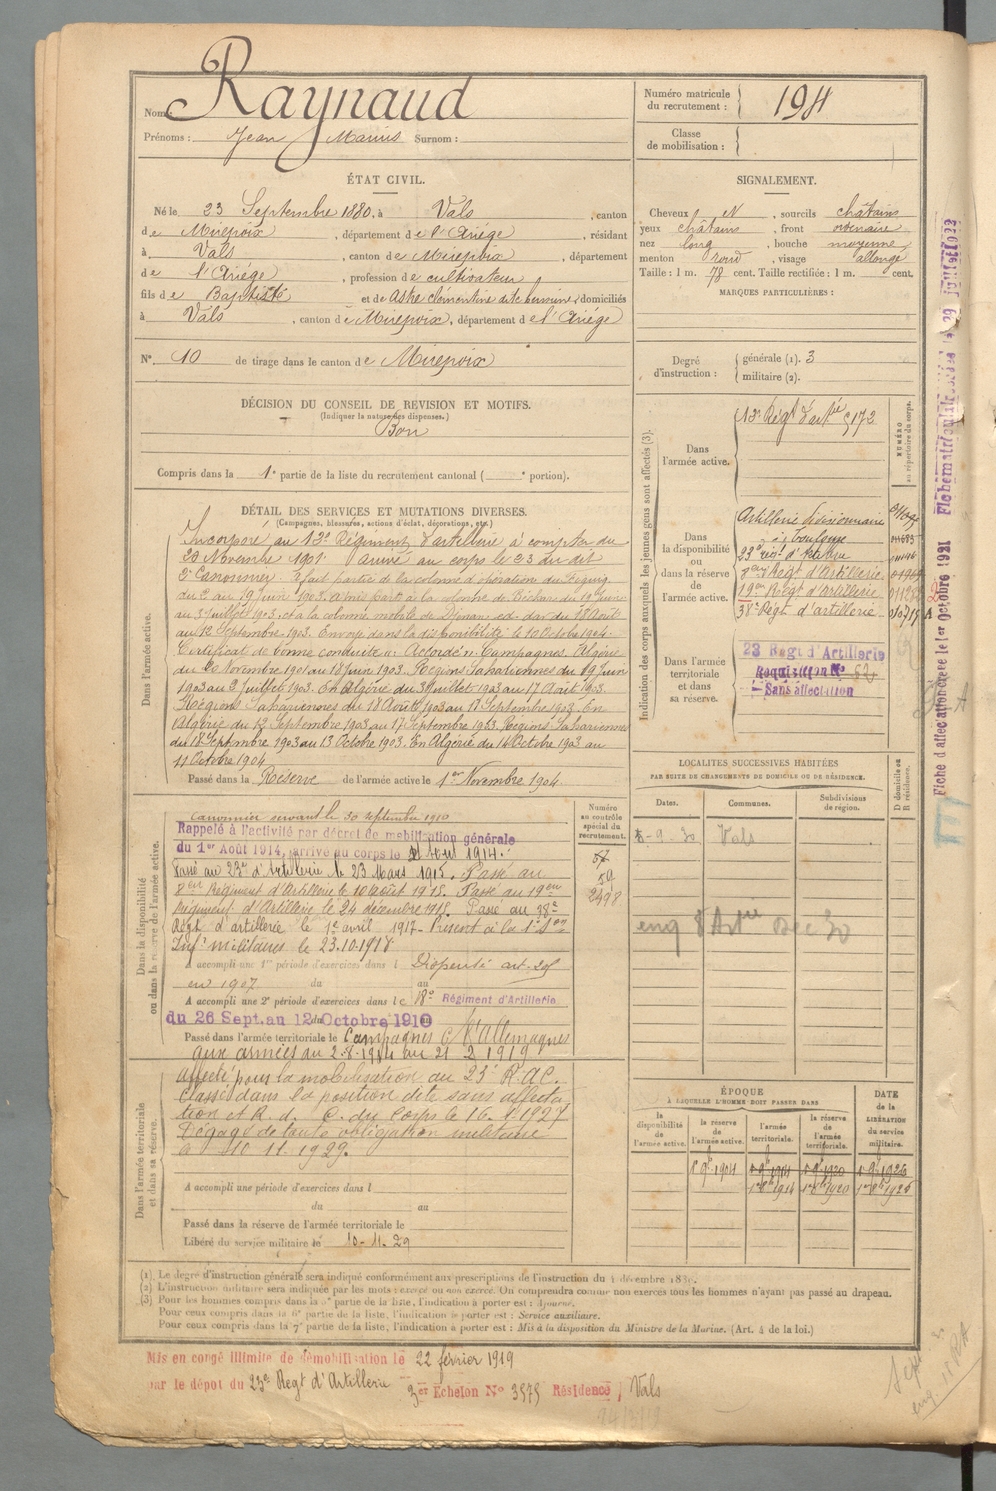 Nom : Raynaud
Prénoms : Jean Marius Surnom :
Numéro matricule du recrutement : 198
Classe de mobilisation :
ÉTAT CIVIL.
Né le 23 Septembre 1880, à Vals, canton
de Mirepoix, département de l'Ariége, résidant
à Vals, canton de Mirepoix, département
de l'Ariége, profession de cultivateur
fils de Baptiste et de Astre Clémentine dite domiciliés
à Vals, canton de Mirepoix, département de l'Ariége
N° 10 de tirage dans le canton de Mirepoix
SIGNALEMENT.
Cheveux N, sourcils châtains
yeux châtains, front ordinaire
nez long, bouche moyenne
menton rond, visage allongé
Taille : 1 m. 78 cent. Taille rectifiée : 1 m. cent.
MARQUES PARTICULIÈRES :
Degré d'instruction : générale (1). 3
militaire (2).
DÉCISION DU CONSEIL DE REVISION ET MOTIFS.
(Indiquer la nature des dispenses.)
Bon
Compris dans la 1e partie de la liste du recrutement cantonal ( e portion).
DÉTAIL DES SERVICES ET MUTATIONS DIVERSES.
(Campagnes, blessures, actions d'éclat, décorations, etc.)
Dans l'armée active.
Incorporé au 13e Régiment d'artillerie à compter du
20 Novembre 1901 arrivé au corps le 23 du dit
2e Canonnier. A fait partie de la colonne d'opération du Figuig
du 2 au 19 Juin 1903. a pris part à la colonne de Béchar du 19 Juin
au 3 Juillet 1903, et à la colonne mobile de du 18 Août
au 12 Septembre 1903. Envoyé dans la disponibilité le 10 Octobre 1904.
Certificat de bonne conduite "Accordé". Campagnes. Algérie
du 20 Novembre 1901 au 18 Juin 1903. Régions Sahariennes du 19 Juin
1903 au 2 Juillet 1903. En Algérie du 3 Juillet 1903 au 17 Août 1903.
Régions Sahariennes du 18 Août 1903 au 11 Septembre 1903. En
Algérie du 12 Septembre 1903 au 17 Septembre 1903. Régions Sahariennes
du 18 Septembre 1903 au 13 Octobre 1903. En Algérie du 14 Octobre 1903 au
11 Octobre 1904
Passé dans la Réserve de l'armée active le 1er Novembre 1904.
Indication des corps auxquels les jeunes gens sont affectés (3).
NUMÉRO au répertoire du corps.
Dans l'armée active.
13e Régt d'artie 5172
Dans la disponibilité ou dans la réserve de l'armée active.
Artillerie Divisionnaire
à Toulouse
23e régt d'artillerie
Régt d'Artillerie
19e Régt d'Artillerie
38e Régt d'artillerie
Dans l'armée territoriale et dans sa réserve.
23 Regt d'Artillerie
Requisition No 52
Sans affectation
Fiche d'affectation créée le 1er Octobre 1921
Fiche matriculaire 29 Juillet 1922
Dans la disponibilité ou dans la réserve de l'armée active.
Numéro au contrôle spécial du recrutement.
canonnier servant le 30 septembre 1910
Rappelé à l'activité par décret de mobilisation générale
du 1er Août 1914, arrivé au corps le 2 Aout 1914.
Passé au 23e d'Artillerie le 23 Mars 1915. Passé au
Régiment d'Artillerie le 10 août 1915. Passé au 19em
Régiment d'Artillerie le 24 décembre 1915. Passé au 38e
Régt d'artillerie le 1er avril 1917. Présent à la
Infs militaires le 23.10.1918
2498
A accompli une 1re période d'exercices dans l Dispensé art.
en 1907 du au
A accompli une 2e période d'exercices dans le 18e Régiment d'Artillerie
du 26 Sept. au 12 Octobre 1910
Passé dans l'armée territoriale le Campagnes C/ l'Allemagne
aux armées du 2.8.1914 au 21 2 1919
Dans l'armée territoriale et dans sa réserve.
Affecté pour la mobilisation au 23e R.A.C.
Classé dans la position dite sans affecta
tion et R.d. C. du Corps le 16.1.1927
Dégagé de toute obligation militaire
à 10 11 1929.
A accompli une période d'exercices dans l
du au
Passé dans la réserve de l'armée territoriale le
Libéré du service militaire le 10-11.29
LOCALITÉS SUCCESSIVES HABITÉES
PAR SUITE DE CHANGEMENTS DE DOMICILE OU DE RÉSIDENCE.
Dates. Communes. Subdivisions de région. D domicile ou R résidence.
8-9.30 Vals
ÉPOQUE
À LAQUELLE L'HOMME DOIT PASSER DANS
la disponibilité de l'armée active. la réserve de l'armée active. l'armée territoriale. la réserve de l'armée territoriale.
DATE de la LIBÉRATION du service militaire.
1er 9b 1904 1er 9b 1914 1er 9b 1920 1er 9b 1926
1er 8b 1914 1er 8b 1920 1er 8b 1926
(1) Le degré d'instruction générale sera indiqué conformément aux prescriptions de l'instruction du 4 décembre 1889.
(2) L'instruction militaire sera indiquée par les mots : exercé ou non exercé. On comprendra comme non exercés tous les hommes n'ayant pas passé au drapeau.
(3) Pour les hommes compris dans la 5e partie de la liste, l'indication à porter est : Ajourné.
Pour ceux compris dans la 6e partie de la liste, l'indication à porter est : Service auxiliaire.
Pour ceux compris dans la 7e partie de la liste, l'indication à porter est : Mis à la disposition du Ministre de la Marine. (Art. 4 de la loi.)
Mis en congé illimité de démobilisation le 22 février 1919
par le dépot du 23e Regt d'Artillerie
3er Echelon No 3575 Résidence Vals